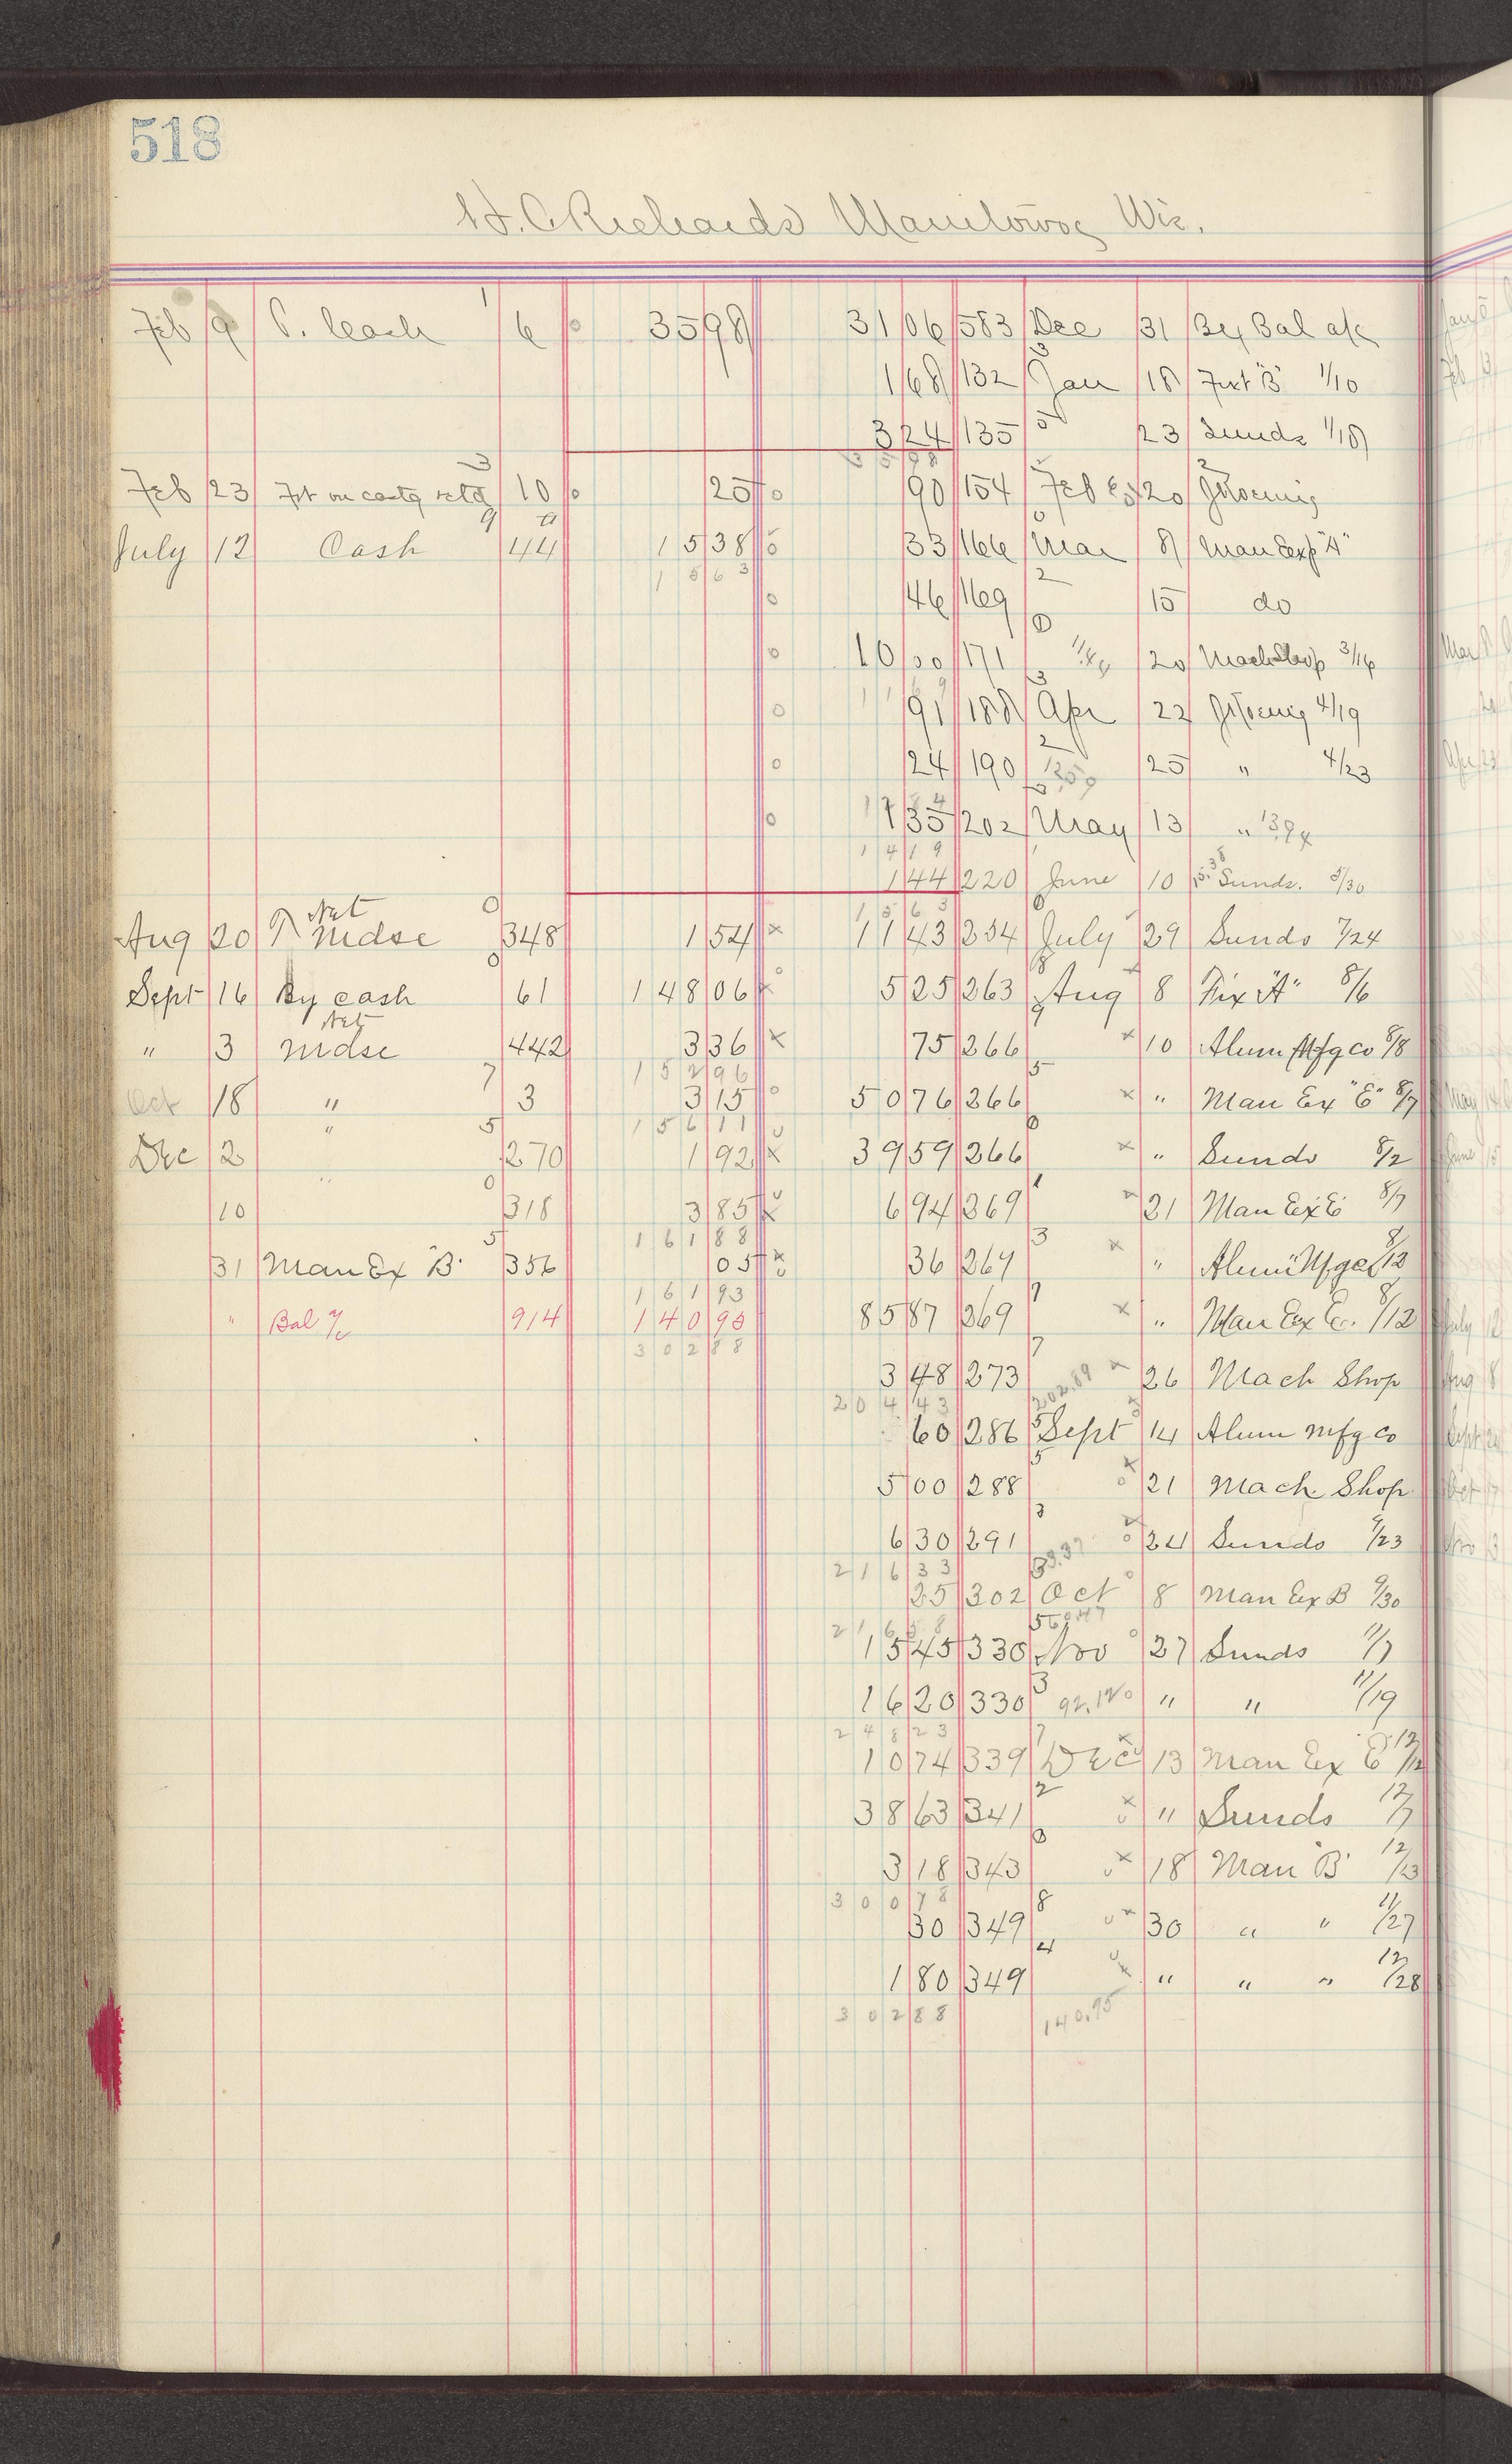 518
H. C. Richards Manitowoc Wis.
Feb 9 6 35 98 31 06 583 Dec 31 By Bal a/c
1 68 132 Jan 18 "B" 1/10
3 24 135 23 Sunds 1/18
35 98
Feb 23 Frt on castg retd 10 25 90 154 Feb 20 J Koenig
July 12 Cash 44 15 38 33 166 Mar 8 Man Exp "A"
15 63
46 169 15 do
10 00 171 20 Mach Shop 3/16
91 188 Apr 22 J Koenig 4/19
24 190 25 " 4/23
1 35 202 May 13 " 13.94
14 19
1 44 220 June 10 Sunds. 5/30
15 63
Aug 20 Net Mdse 348 1 54 11 43 254 July 29 Sunds 7/24
Sept 16 By cash 61 148 06 5 25 263 Aug 8 Fix "A" 8/6
" 3 Net Mdse 442 3 36 75 266 10 Alum Mfg Co 8/8
152 96
Oct 18 " 3 3 15 50 76 266 " Man Ex "E" 8/7
156 11
Dec 2 " 270 1 92 39 59 266 " Sunds 8/2
10 " 318 3 85 6 94 269 21 Man Ex E 8/7
161 88
31 Man Ex "B" 356 05 36 269 " Alum Mfg Co 8/12
161 93
" Bal a/c 914 140 95 85 87 269 " Man Ex E. 8/12
302 88
3 48 273 202.89 26 Mach Shop
204 43
60 286 Sept 14 Alum Mfg Co
5 00 288 21 Mach Shop
6 30 291 24 Sunds 9/23
216 33
25 302 Oct 8 Man Ex B 9/30
216 58
15 45 330 Nov 27 Sunds 11/7
16 20 330 " " 11/19
248 23
10 74 339 Dec 13 Man Ex E 12/12
38 63 341 " Sunds 12/7
3 18 343 18 Man "B" 12/13
300 78
30 349 30 " " 11/27
1 80 349 " " " 12/28
302 88 140.95